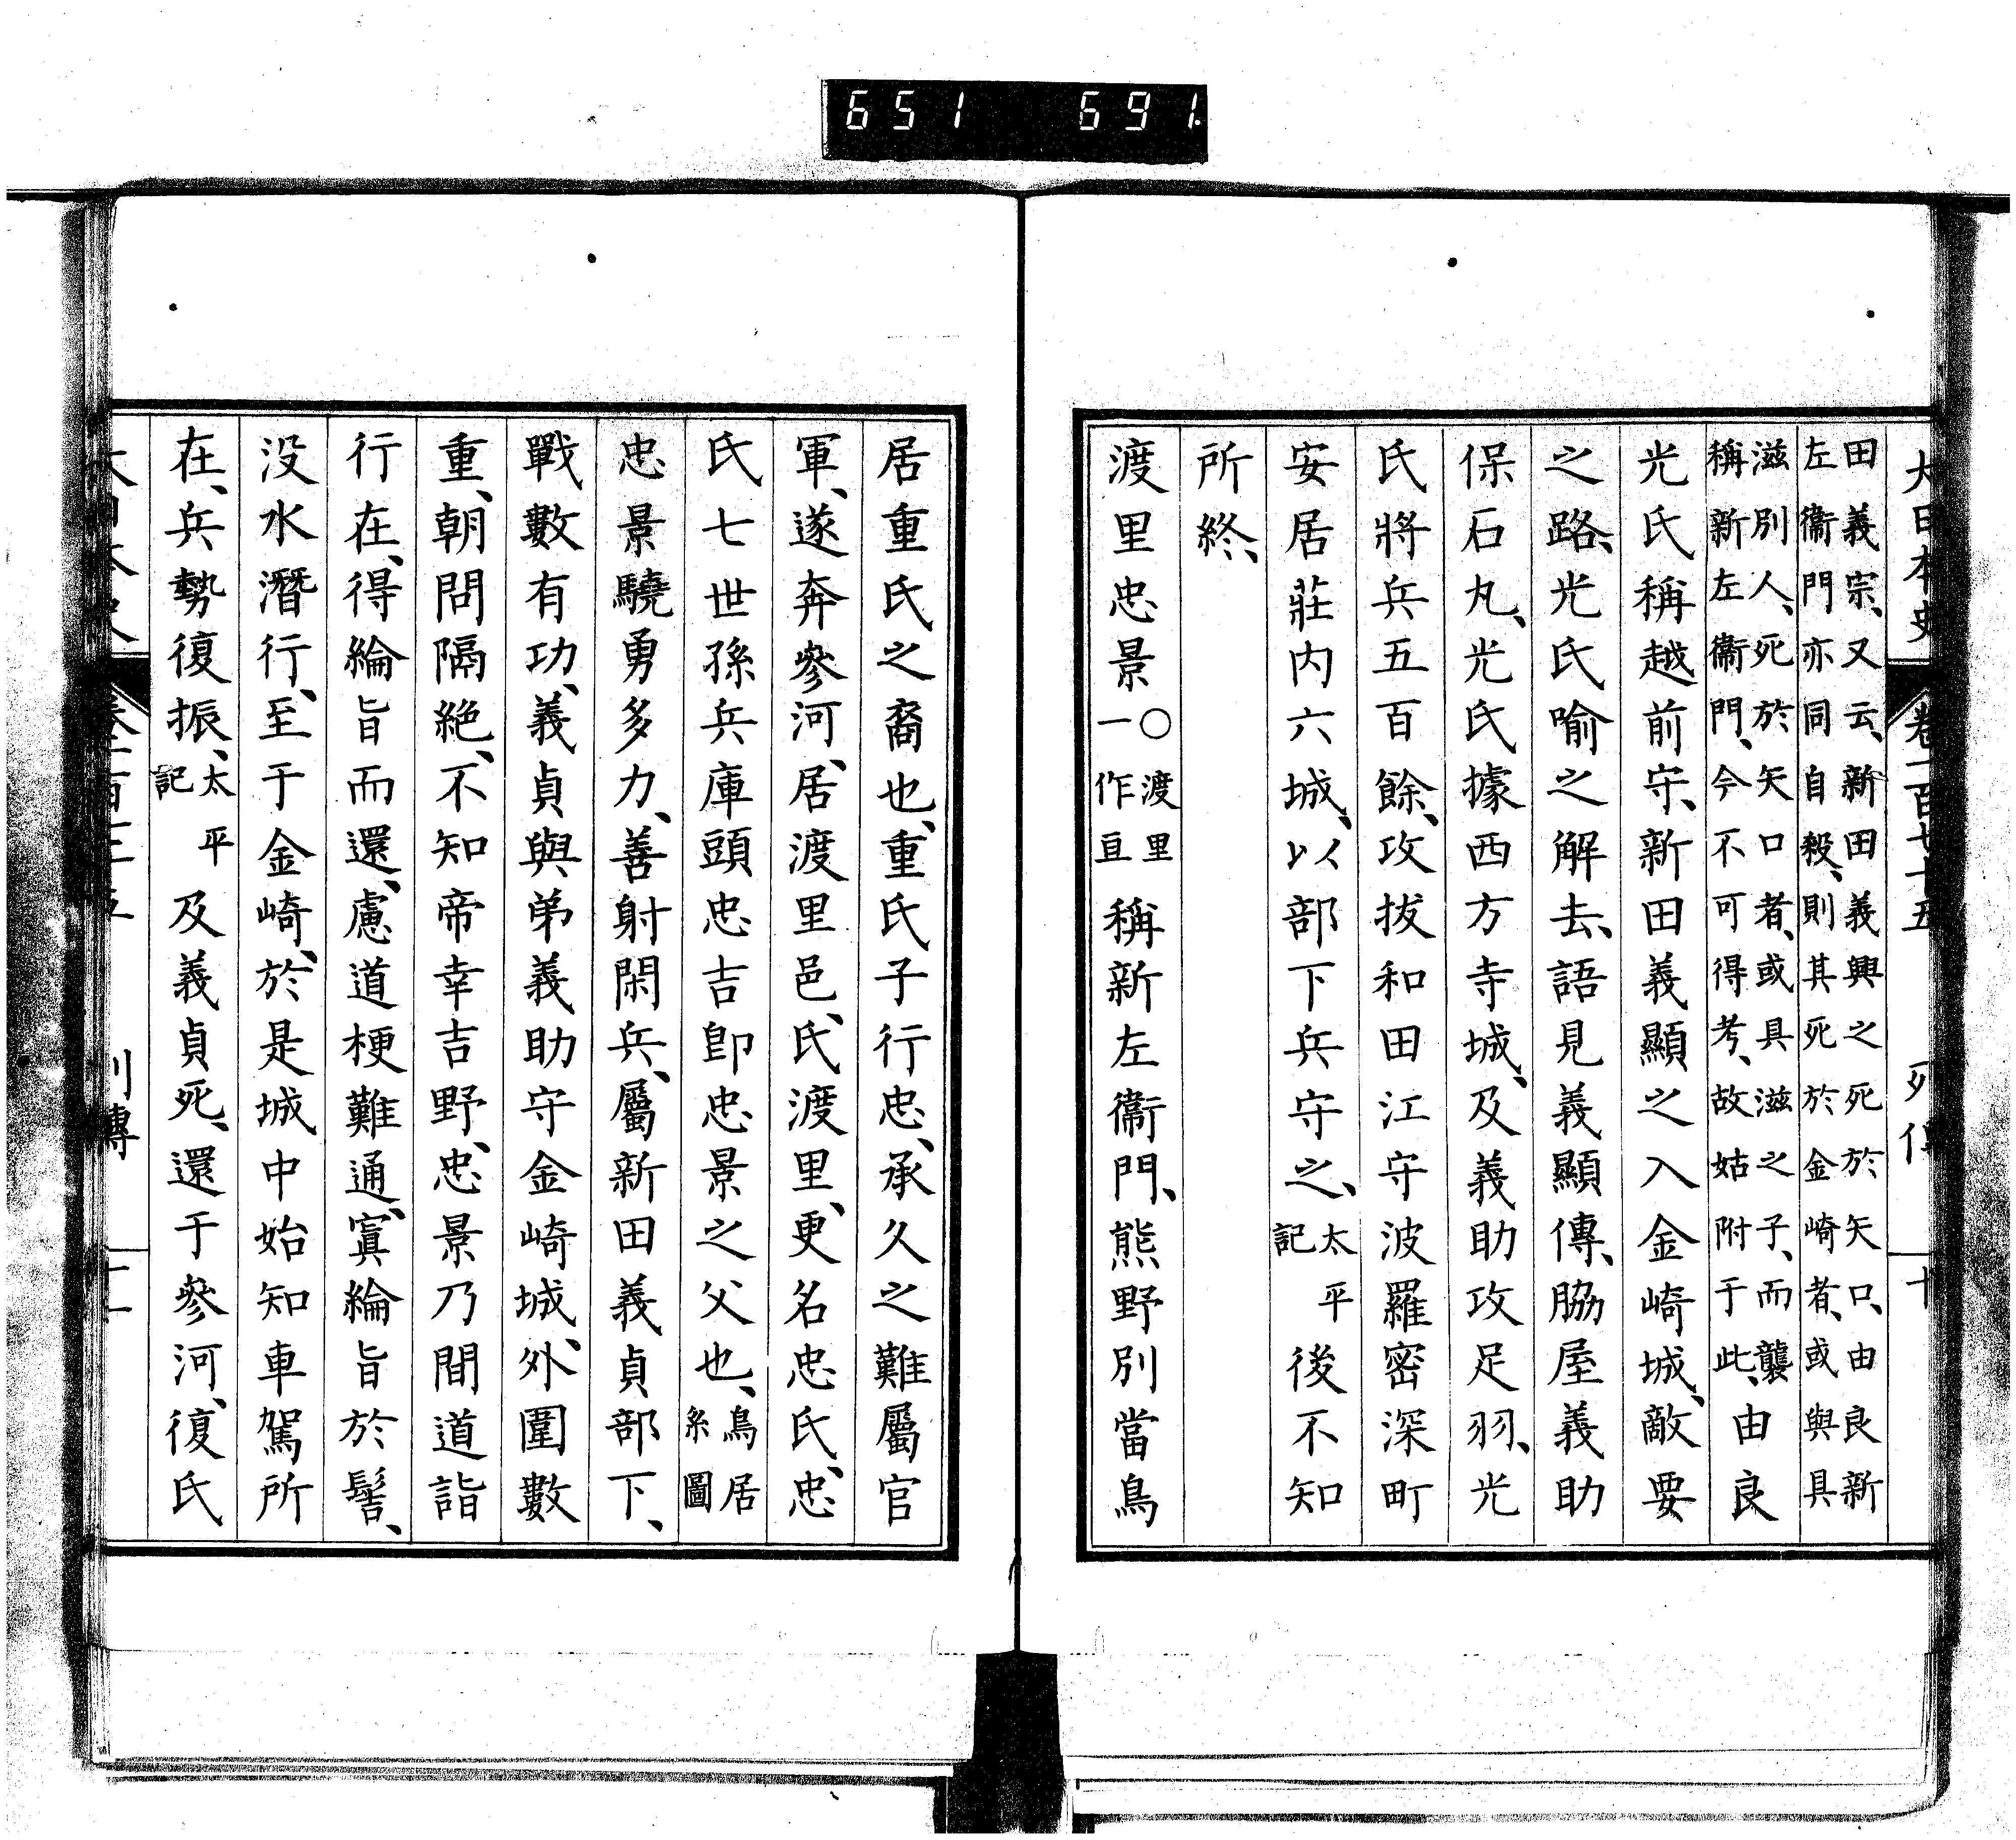 651 691
大日本史 卷一百七十五 列傳 十
田義宗、又云、新田義興之死於矢口、由良新
左衞門亦同自殺、則其死於金崎者、或與具
滋別人、死於矢口者、或具滋之子、而襲
稱新左衞門、今不可得考、故姑附于此、由良
光氏稱越前守、新田義顯之入金崎城、敵要
之路、光氏喻之解去、語見義顯傳、脇屋義助
保石丸、光氏據西方寺城、及義助攻足羽、光
氏將兵五百餘、攻拔和田江守波羅密深町
安居莊内六城、以部下兵守之、太平記後不知
所終、
渡里忠景○渡里一作亘理稱新左衞門、熊野別當鳥
居重氏之裔也、重氏子行忠、承久之難屬官
軍、遂奔參河、居渡里邑、氏渡里、更名忠氏、忠
氏七世孫兵庫頭忠吉卽忠景之父也、鳥居系圖
忠景驍勇多力、善射閑兵、屬新田義貞部下、
戰數有功、義貞與弟義助守金崎城、外圍數
重、朝問隔絶、不知帝幸吉野、忠景乃間道詣
行在、得綸旨而還、慮道梗難通、寘綸旨於髻、
没水潛行、至于金崎、於是城中始知車駕所
在、兵勢復振、太平記及義貞死、還于參河、復氏